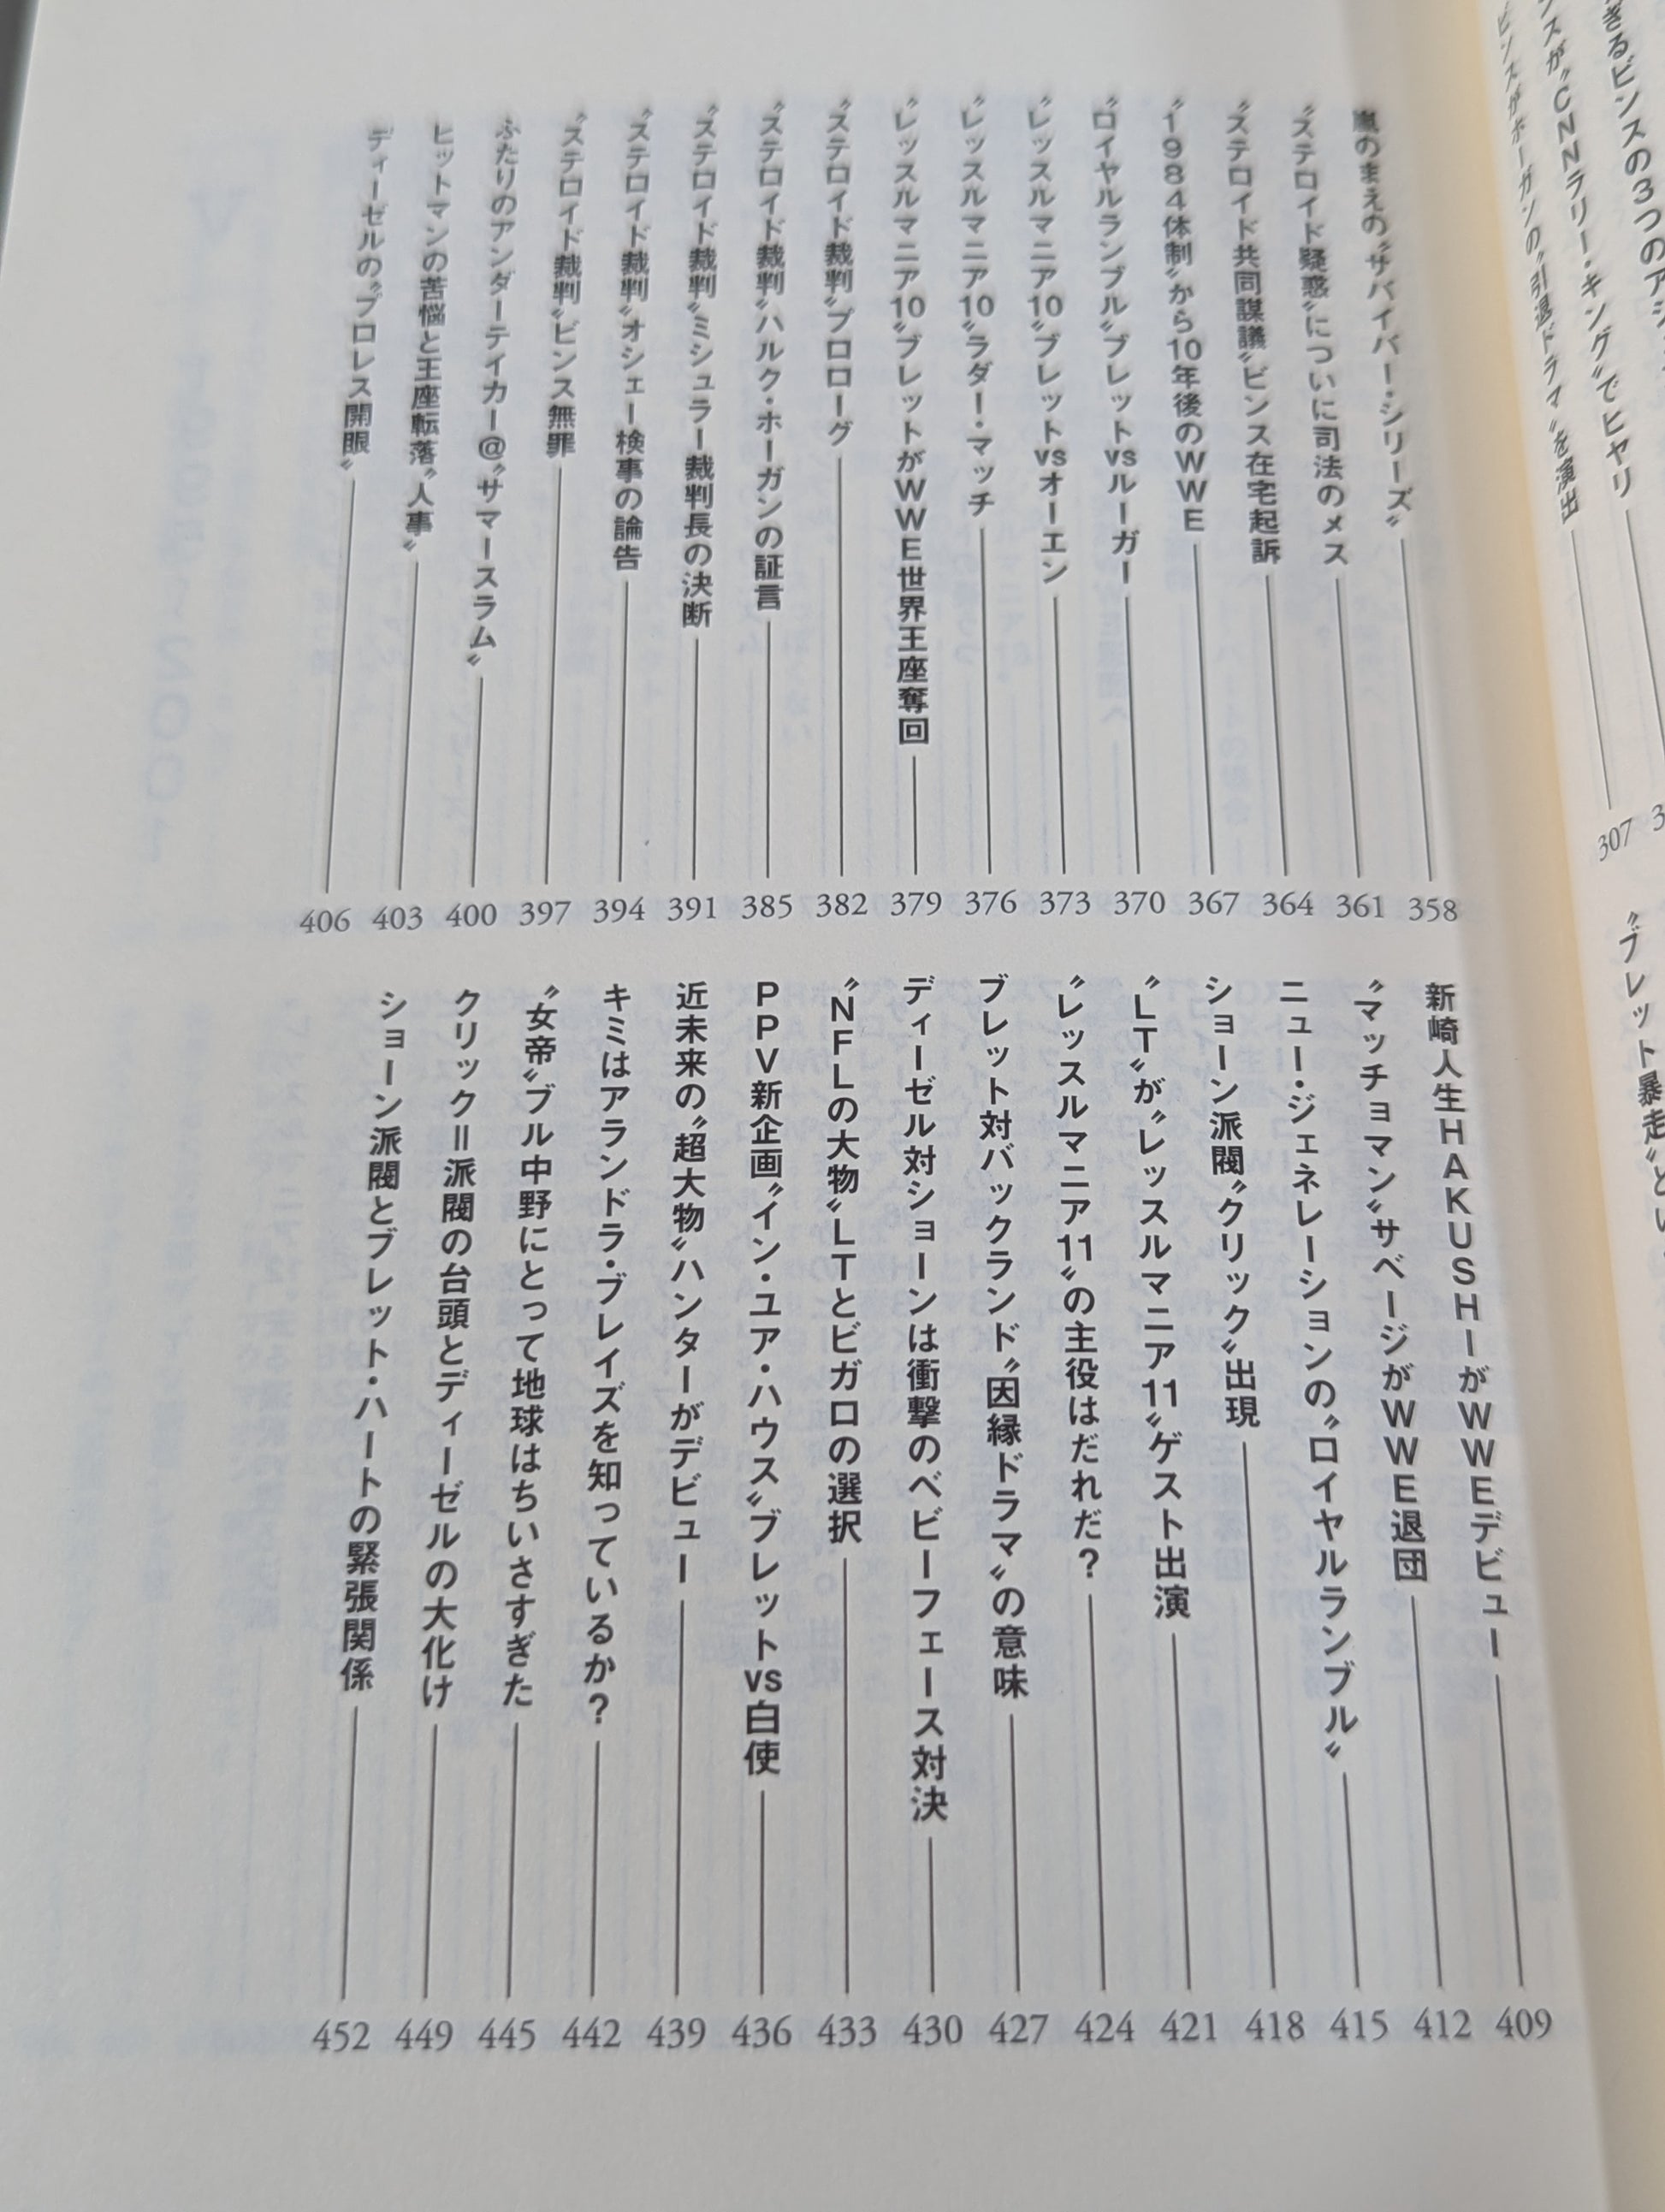 ンスが〝CNNラリー・キング〟でヒヤリ
ビンスがホーガンの〝引退ドラマ〟を演出 307
〝ブレット暴走〟と
嵐のまえの〝サバイバー・シリーズ〟 358
〝ステロイド疑惑〟についに司法のメス 361
〝ステロイド共同謀議〟ビンス在宅起訴 364
〝1984体制〟から10年後のWWE 367
〝ロイヤルランブル〟ブレットvsルーガー 370
〝レッスルマニア10〟ブレットvsオーエン 373
〝レッスルマニア10〟ラダー・マッチ 376
〝レッスルマニア10〟ブレットがWWE世界王座奪回 379
〝ステロイド裁判〟プロローグ 382
〝ステロイド裁判〟ハルク・ホーガンの証言 385
〝ステロイド裁判〟ミシュラー裁判長の決断 391
〝ステロイド裁判〟オシェー検事の論告 394
〝ステロイド裁判〟ビンス無罪 397
ふたりのアンダーテイカー@〝サマースラム〟 400
ヒットマンの苦悩と王座転落〝人事〟 403
ディーゼルの〝プロレス開眼〟 406
新崎人生HAKUSHIがWWEデビュー 409
〝マッチョマン〟サベージがWWE退団 412
ニュー・ジェネレーションの〝ロイヤルランブル〟 415
ショーン派閥〝クリック〟出現 418
〝LT〟が〝レッスルマニア11〟ゲスト出演 421
〝レッスルマニア11〟の主役はだれだ? 424
ブレット対バックランド〝因縁ドラマ〟の意味 427
ディーゼル対ショーンは衝撃のベビーフェース対決 430
〝NFLの大物〟LTとビガロの選択 433
PPV新企画〝イン・ユア・ハウス〟ブレットvs白使 436
近未来の〝超大物〟ハンターがデビュー 439
キミはアランドラ・ブレイズを知っているか? 442
〝女帝〟ブル中野にとって地球はちいさすぎた 445
クリック=派閥の台頭とディーゼルの大化け 449
ショーン派閥とブレット・ハートの緊張関係 452